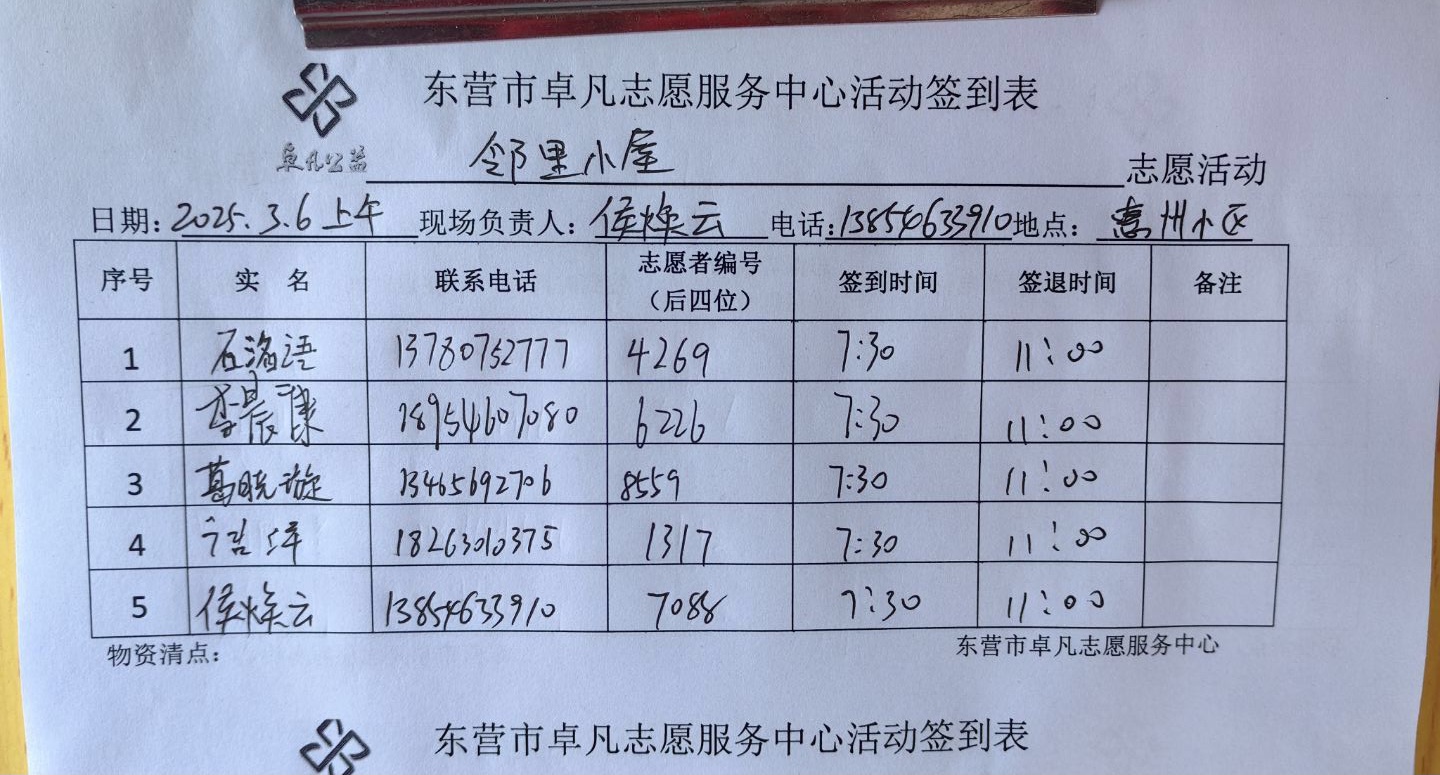 东营市卓凡志愿服务中心活动签到表
卓凡公益
邻里小屋 志愿活动
日期：2025.3.6上午 现场负责人：侯焕云 电话：13854633910 地点：惠州小区
序号 实 名 联系电话 志愿者编号（后四位） 签到时间 签退时间 备注
1 石洺语 13780752777 4269 7:30 11:00
2 李晨 18954607080 6226 7:30 11:00
3 葛晓漩 13465692706 8559 7:30 11:00
4 18263010375 1317 7:30 11:00
5 侯焕云 13854633910 7088 7:30 11:00
物资清点： 东营市卓凡志愿服务中心
东营市卓凡志愿服务中心活动签到表